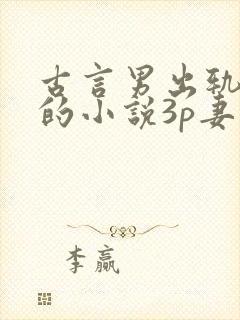 古言男出轨
的小説3p妻
李赢